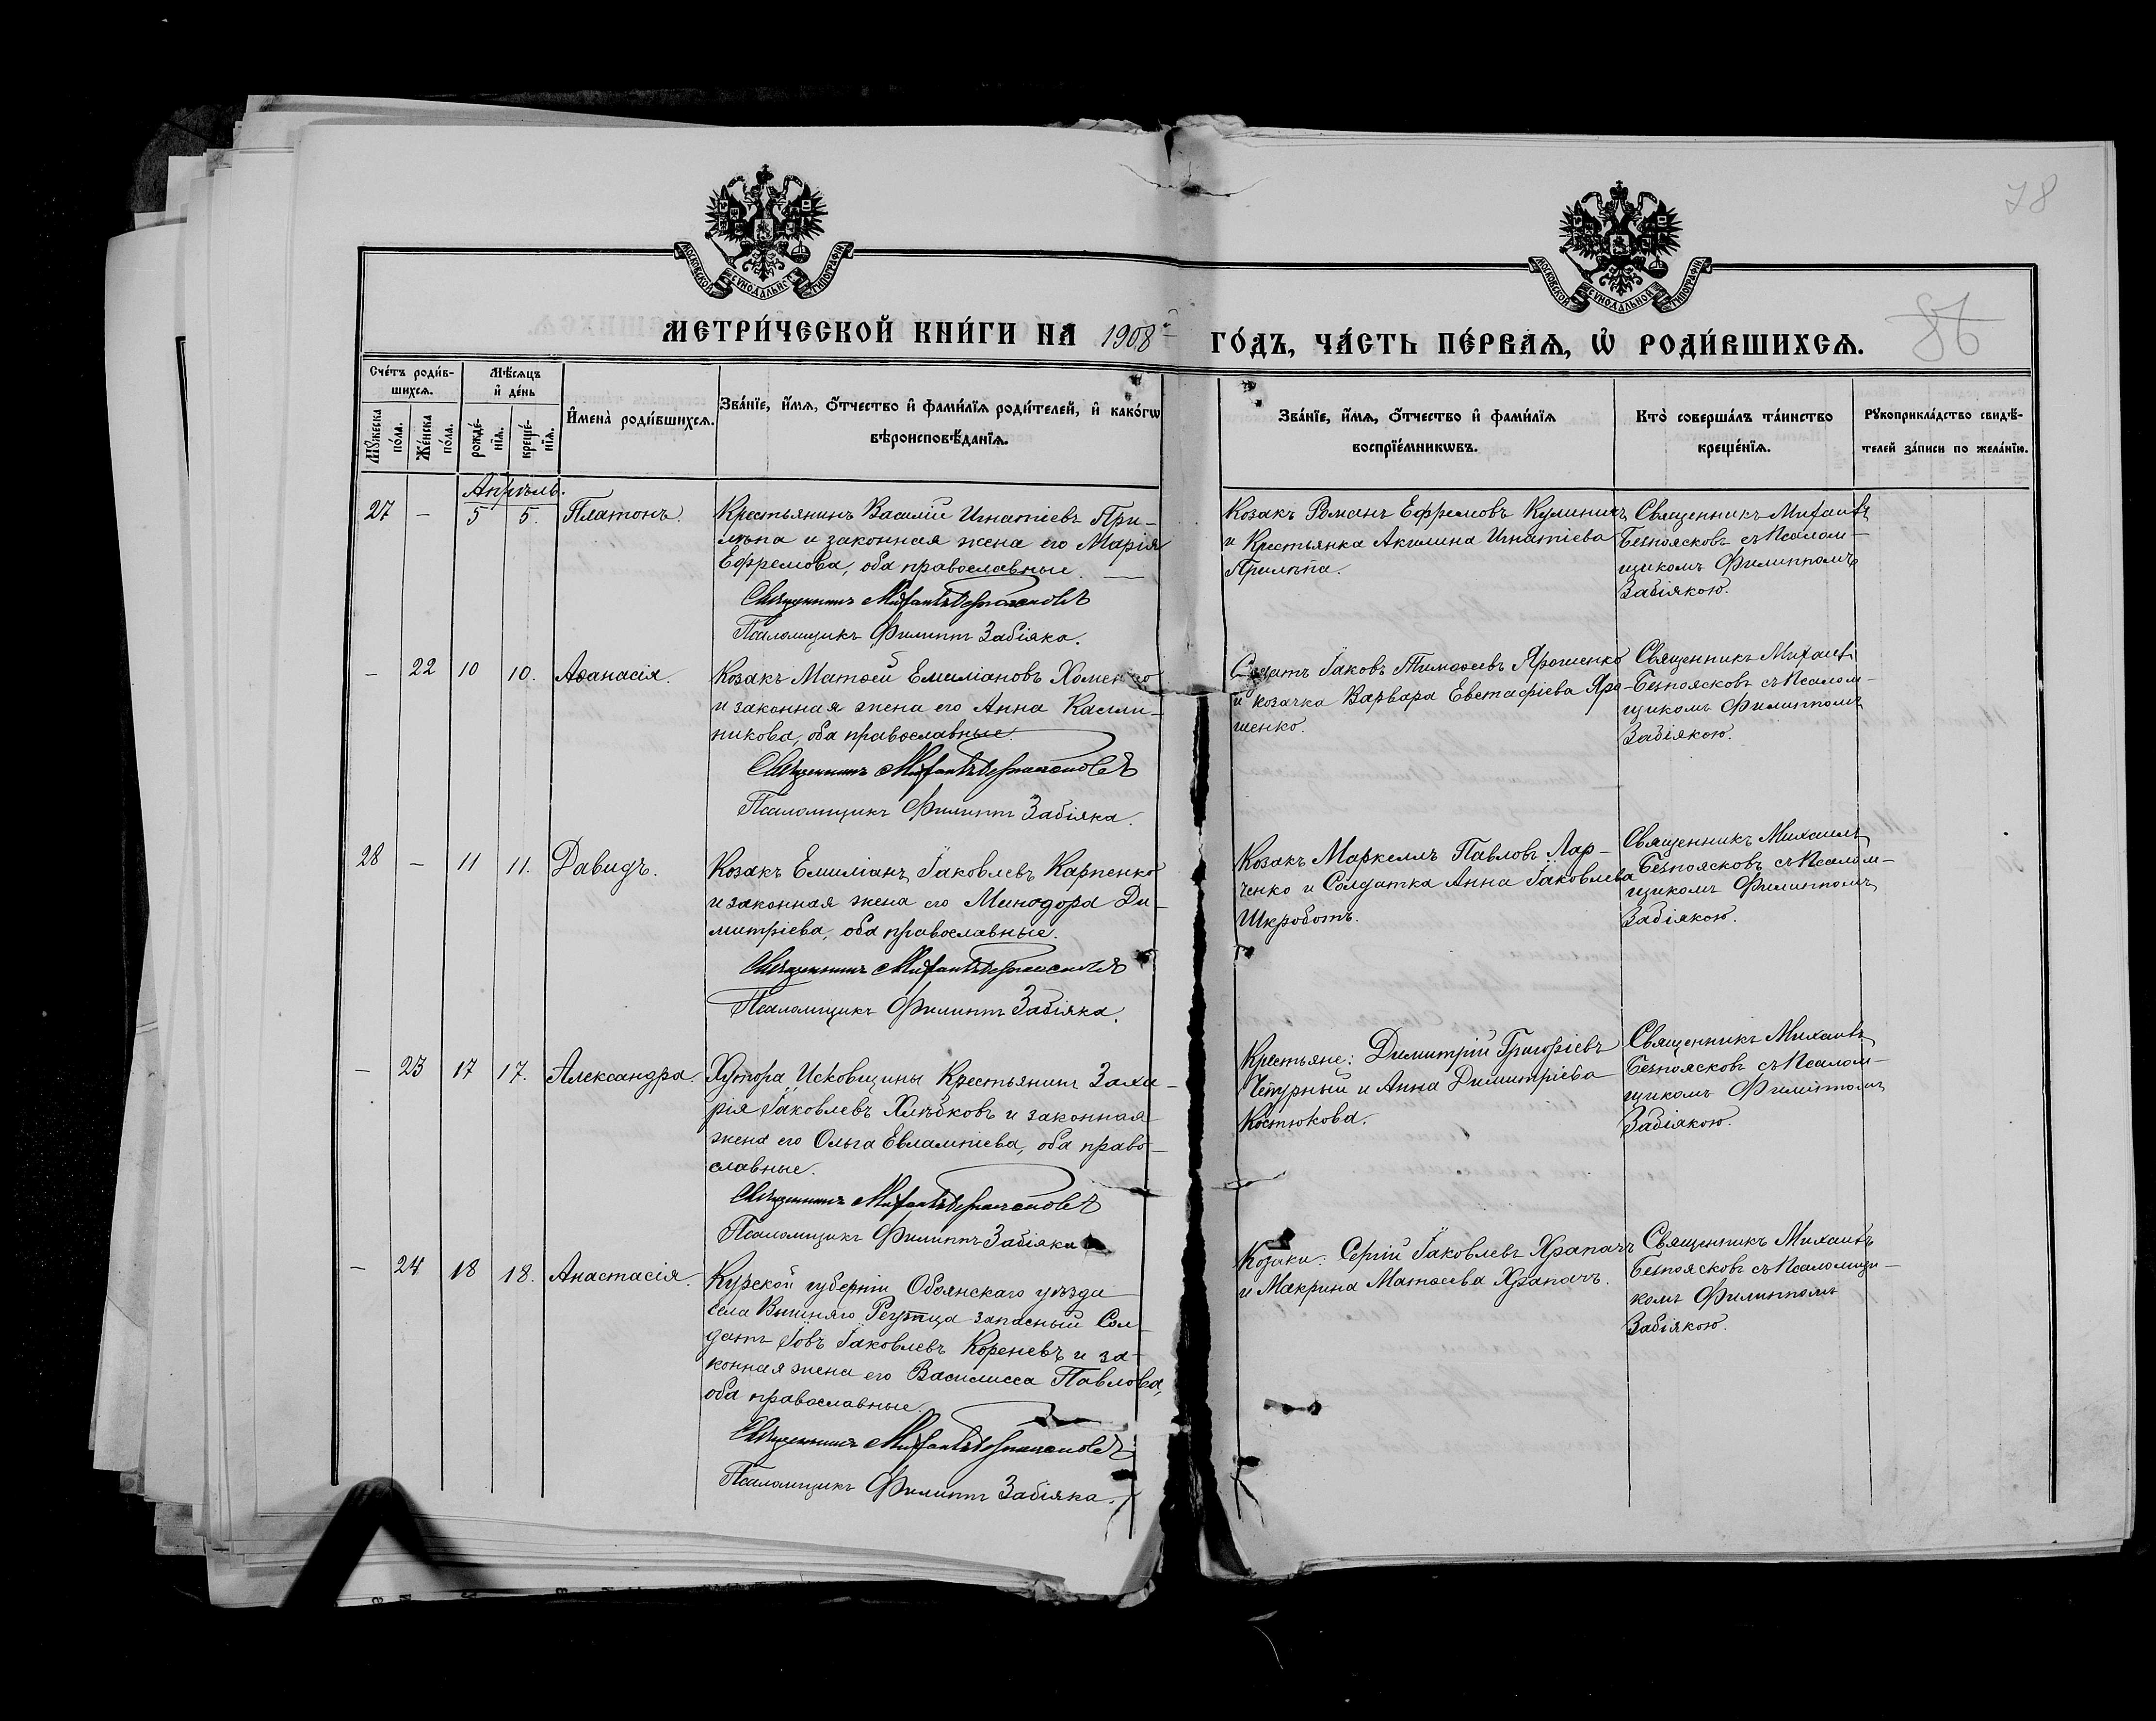 78
МОСКОВСКОЙ СѴНОДАЛЬНОЙ ТИПОГРАФІИ
МОСКОВСКОЙ СѴНОДАЛЬНОЙ ТИПОГРАФІИ
МЕТРИ́ЧЕСКОЙ КНИ́ГИ НА 1908й ГО́ДЪ, ЧА́СТЬ ПЕ́РВАѦ, Ѡ҆ РОДИ́ВШИХСѦ.
86
Сче́тъ роди́в-
шихсѧ.
Мꙋ́жеска по́ла.
Же́нска по́ла.
Мѣ́сѧцъ
и҆ де́нь
рожде́-
нїѧ.
креще́-
нїѧ.
И҆мена̀ роди́вшихсѧ.
Зва́нїе, и҆́мѧ, ѻ҆́тчество и҆ фами́лїѧ роди́телей, и҆ како́гѡ
вѣроисповѣ́данїѧ.
Зва́нїе, и҆́мѧ, ѻ҆́тчество и҆ фами́лїѧ
воспрїе́мникѡвъ.
Кто̀ соверша́лъ та́инство
креще́нїѧ.
Рꙋкоприкла́дство свидѣ́-
телей за́писи по жела́нїю.
Апрѣль.
27 — 5 5. Платонъ.
Крестьянинъ Василій Игнатіевъ При-
лѣпа и законная жена его Марія
Ефремова, оба православные. —
Священникъ Михаилъ Безпоясковъ
Псаломщикъ Филиппъ Забіяка.
Козакъ Романъ Ефремовъ Кулиничъ
и Крестьянка Акилина Игнатіева
Прилѣпа.
Священникъ Михаилъ
Безпоясковъ съ Псалом-
щикомъ Филиппомъ
Забіякою.
— 22 10 10. Аѳанасія.
Козакъ Матѳей Емиліановъ Хоменко
и законная жена его Анна Калли-
никова, оба православные.
Священникъ Михаилъ Безпоясковъ
Псаломщикъ Филиппъ Забіяка.
Солдатъ Іаковъ Тимоѳеевъ Ярошенко
и козачка Варвара Евстафіева Яро-
шенко.
Священникъ Михаилъ
Безпоясковъ съ Псалом-
щикомъ Филиппомъ
Забіякою.
28 — 11 11. Давидъ.
Козакъ Емиліанъ Іаковлевъ Карпенко
и законная жена его Минодора Ди-
митріева, оба православные.
Священникъ Михаилъ Безпоясковъ
Псаломщикъ Филиппъ Забіяка.
Козакъ Маркеллъ Павловъ Лар-
ченко и Солдатка Анна Іаковлева
Шкроботъ.
Священникъ Михаилъ
Безпоясковъ съ Псалом-
щикомъ Филиппомъ
Забіякою.
— 23 17 17. Александра.
Хутора Исковщины Крестьянинъ Заха-
рія Іаковлевъ Хлѣбковъ и законная
жена его Ольга Евлампіева, оба право-
славные.
Священникъ Михаилъ Безпоясковъ
Псаломщикъ Филиппъ Забіяка
Крестьяне: Димитрій Григоріевъ
Чепурный и Анна Димитріева
Костюкова.
Священникъ Михаилъ
Безпоясковъ съ Псалом-
щикомъ Филиппомъ
Забіякою.
— 24 18 18. Анастасія.
Курской губерніи Обоянскаго уѣзда
села Вышняго Реутца запасный Сол-
датъ Іовъ Іаковлевъ Кореневъ и за-
конная жена его Василисса Павлова,
оба православные.
Священникъ Михаилъ Безпоясковъ
Псаломщикъ Филиппъ Забіяка.
Козаки: Сергій Іаковлевъ Храпачъ
и Макрина Матѳеева Храпачъ.
Священникъ Михаилъ
Безпоясковъ съ Псаломщи-
комъ Филиппомъ
Забіякою.